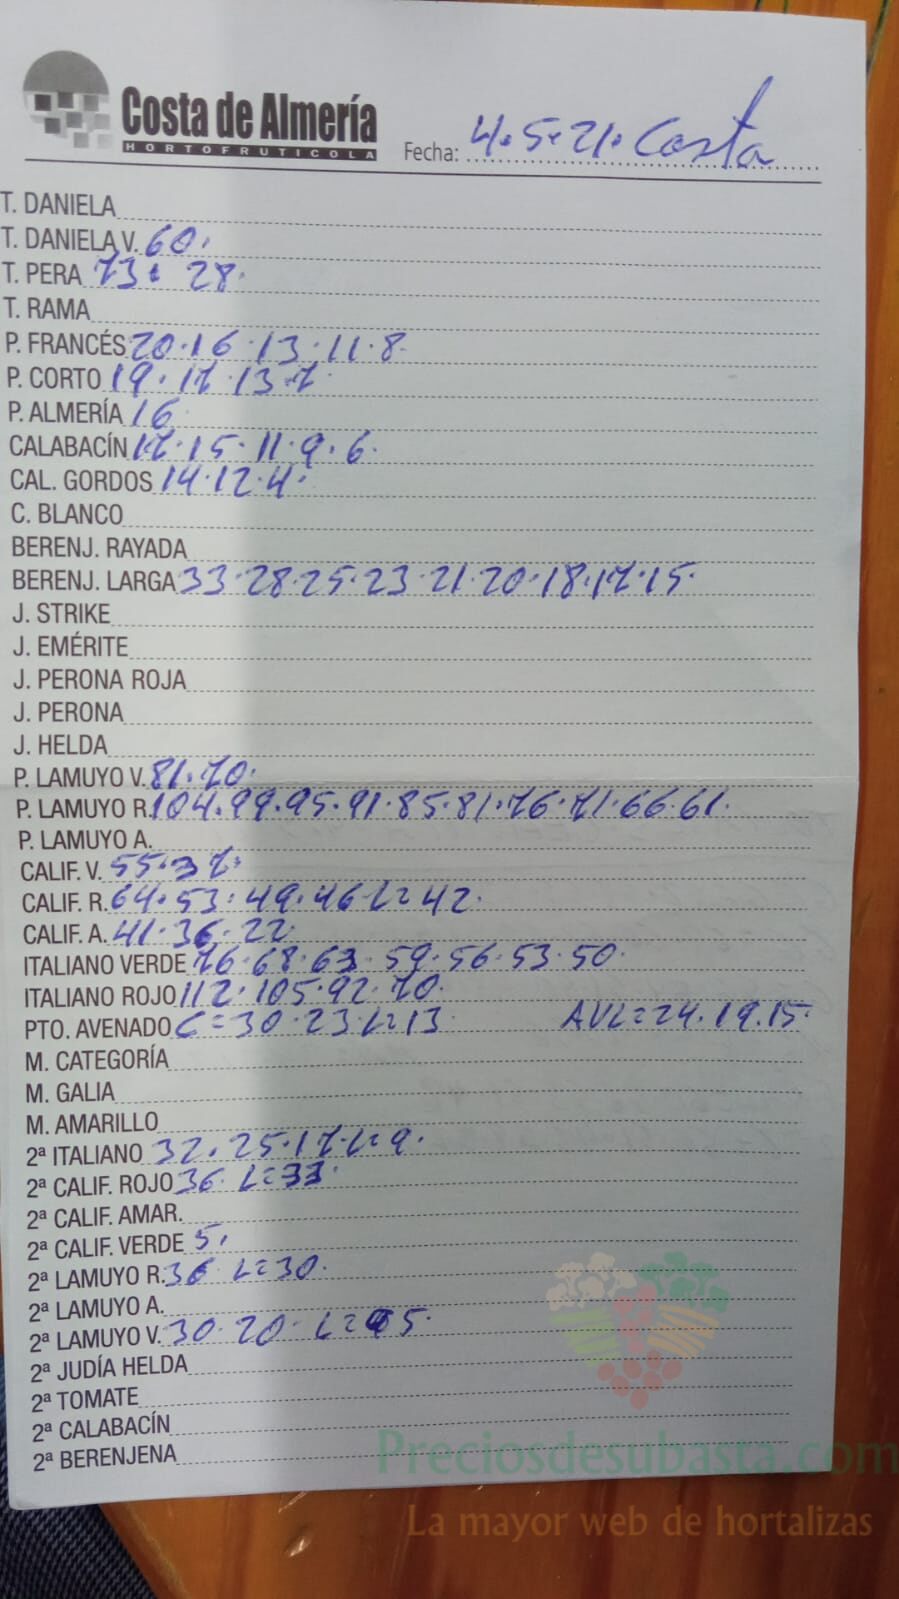 Costa de Almería
HORTOFRUTICOLA
Fecha: 4.5.21. Costa
T. DANIELA
T. DANIELA V. 60.
T. PERA 73. 28.
T. RAMA
P. FRANCÉS 20.16.13.11.8.
P. CORTO 19.17.13.7.
P. ALMERÍA 16
CALABACÍN 17.15.11.9.6.
CAL. GORDOS 14.12.4.
C. BLANCO
BERENJ. RAYADA
BERENJ. LARGA 33.28.25.23.21.20.18.17.15.
J. STRIKE
J. EMÉRITE
J. PERONA ROJA
J. PERONA
J. HELDA
P. LAMUYO V. 81.70.
P. LAMUYO R. 104.99.95.91.85.81.76.71.66.61.
P. LAMUYO A.
CALIF. V. 55.37.
CALIF. R. 64.53.49.46 L=42.
CALIF. A. 41.36.22.
ITALIANO VERDE 76.68.63.59.56.53.50.
ITALIANO ROJO 112.105.92.70.
PTO. AVENADO C=30.23 L=13. AVL=24.19.15.
M. CATEGORÍA
M. GALIA
M. AMARILLO
2ª ITALIANO 32.25.17.L=9.
2ª CALIF. ROJO 36. L=33.
2ª CALIF. AMAR.
2ª CALIF. VERDE 5.
2ª LAMUYO R. 36 L=30.
2ª LAMUYO A.
2ª LAMUYO V. 30.20. L=
2ª JUDÍA HELDA
2ª TOMATE
2ª CALABACÍN
2ª BERENJENA
Preciosdesubasta.com
La mayor web de hortalizas